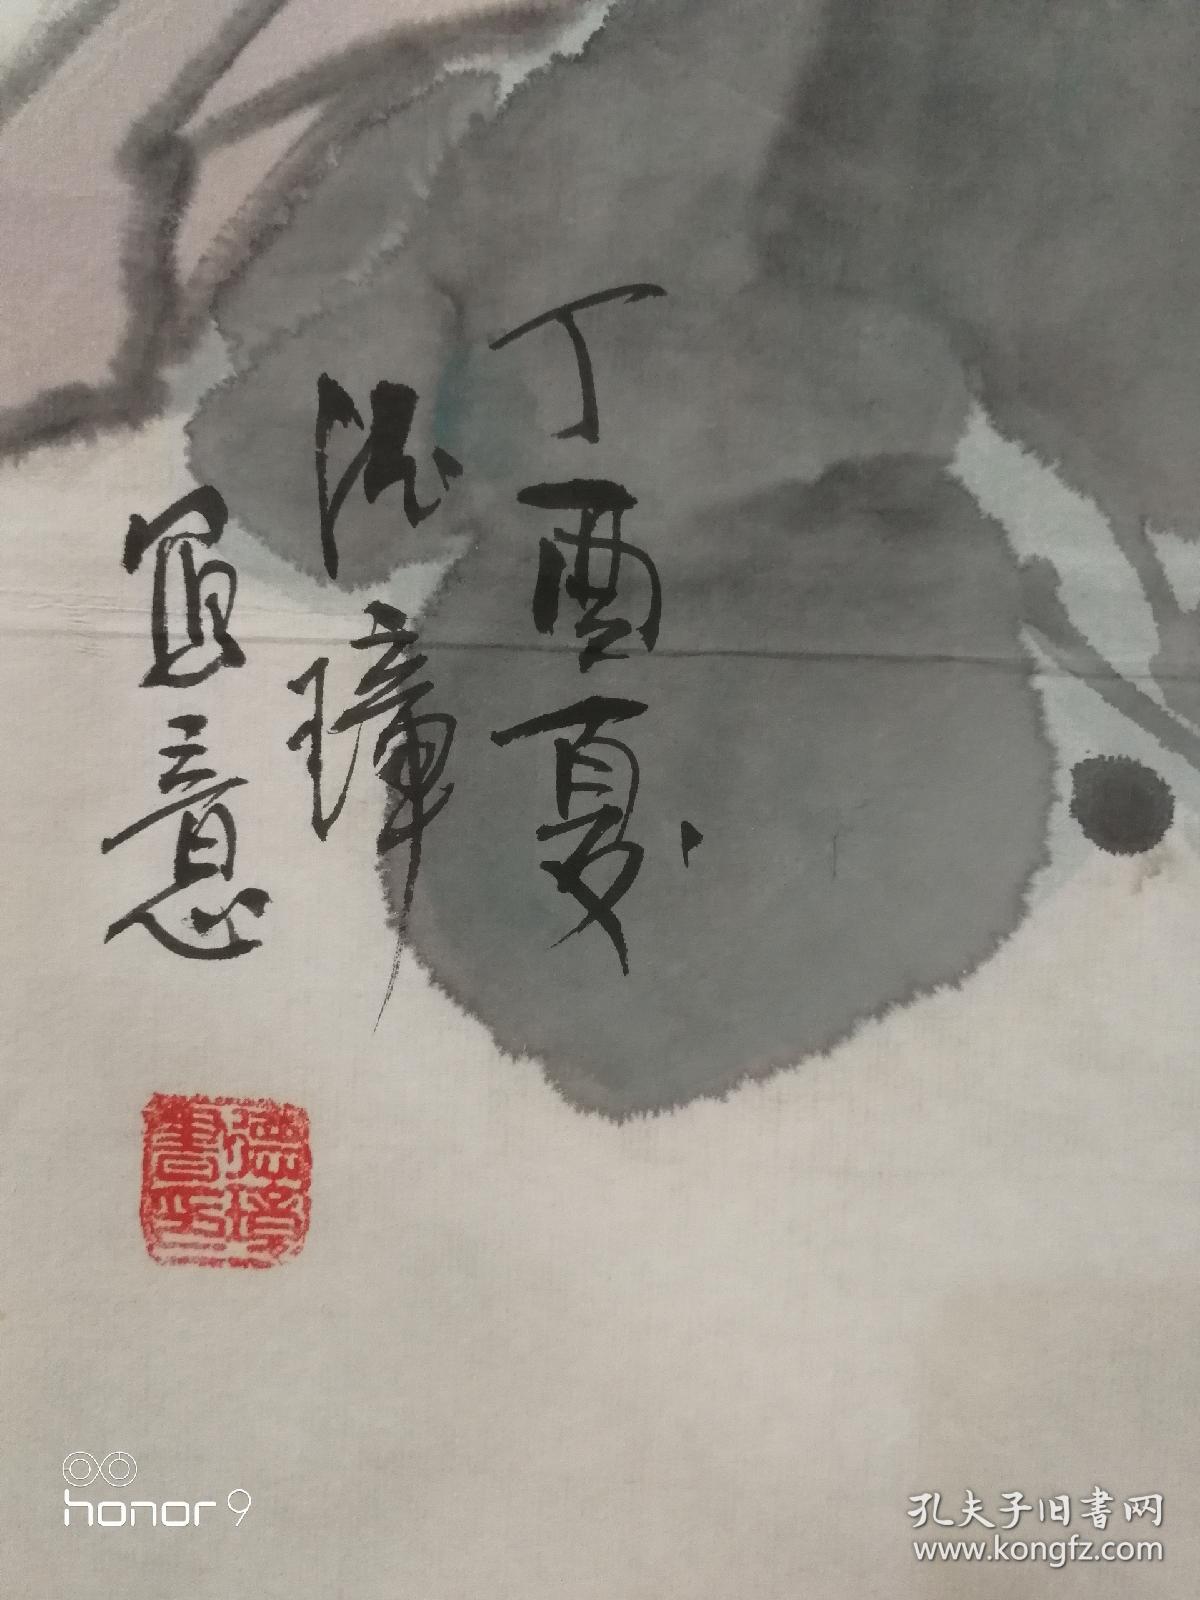 丁酉夏
璋
寫意
honor 9
孔夫子旧書网
www.kongfz.com